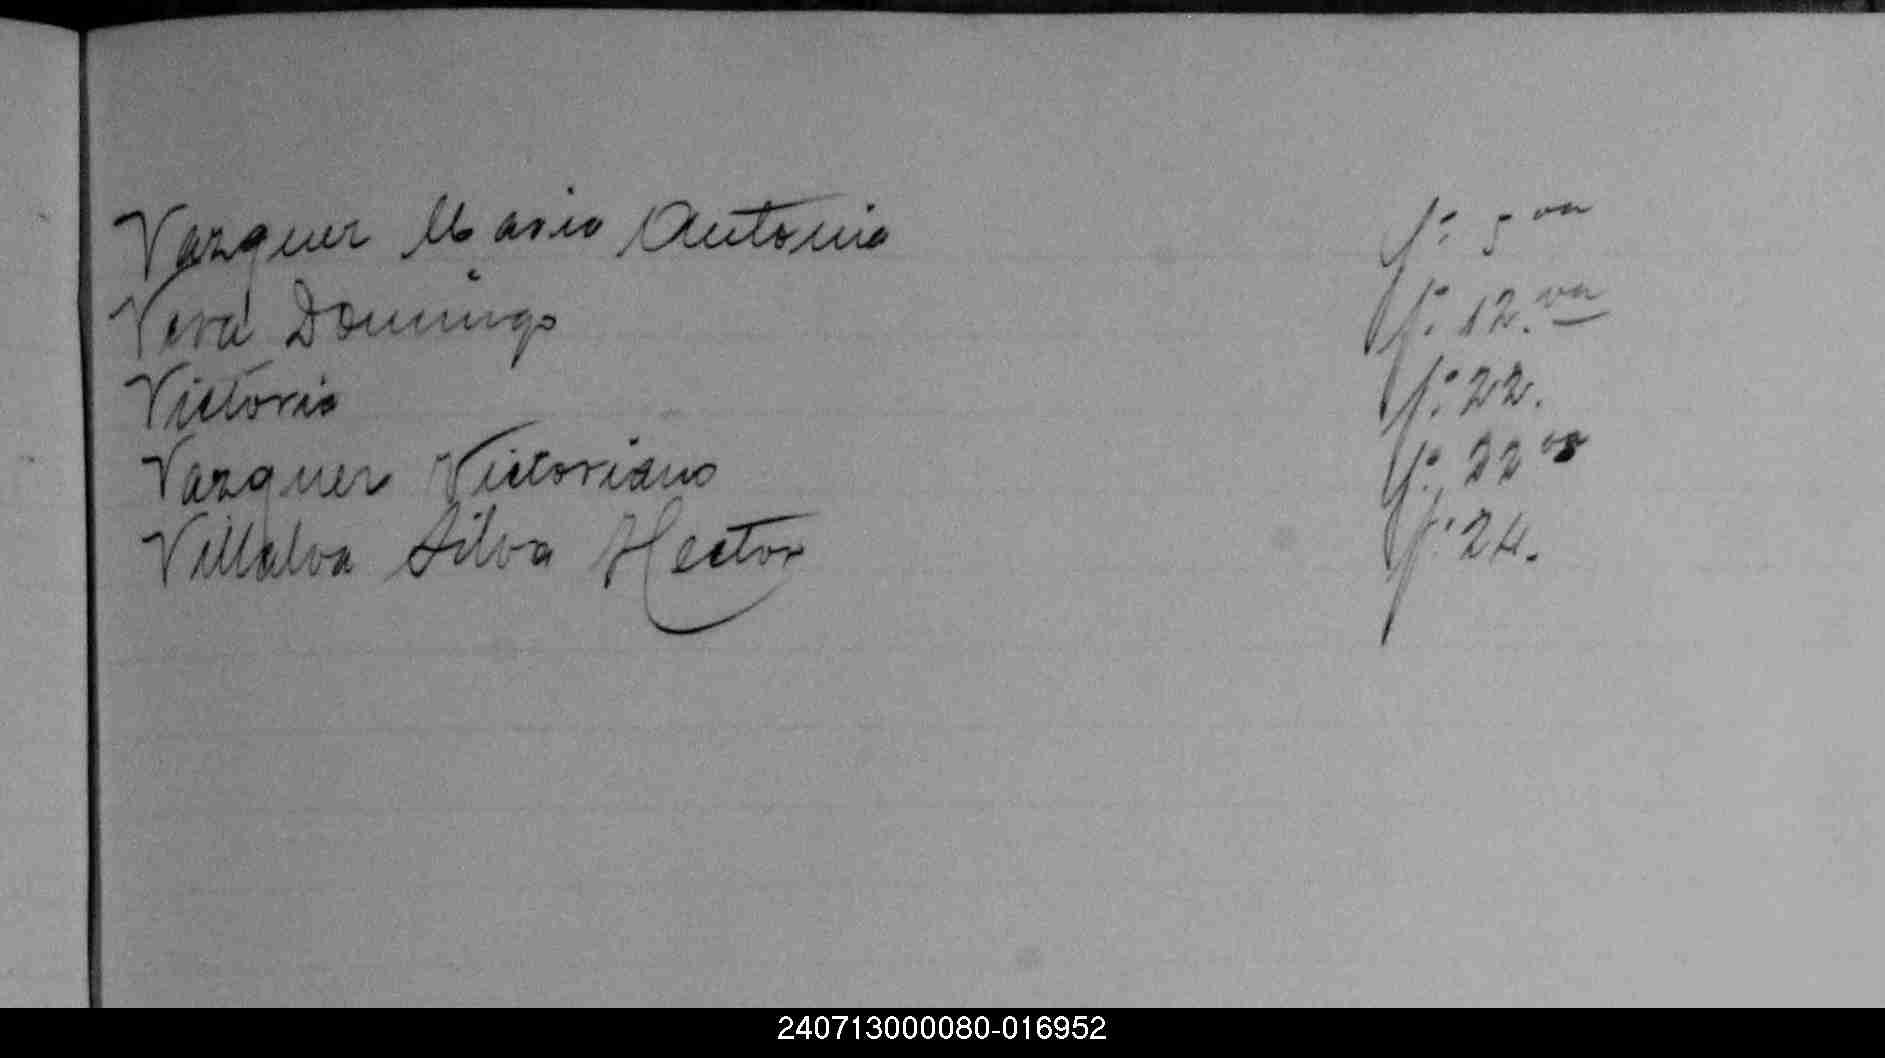 Vazquez Maria Antonia fº 5 va
Vera Domingo fº 12. va
Victoria fº 22.
Vazquez Victoriano fº 22 va
Villalva Silva Hector fº 24.
240713000080-016952